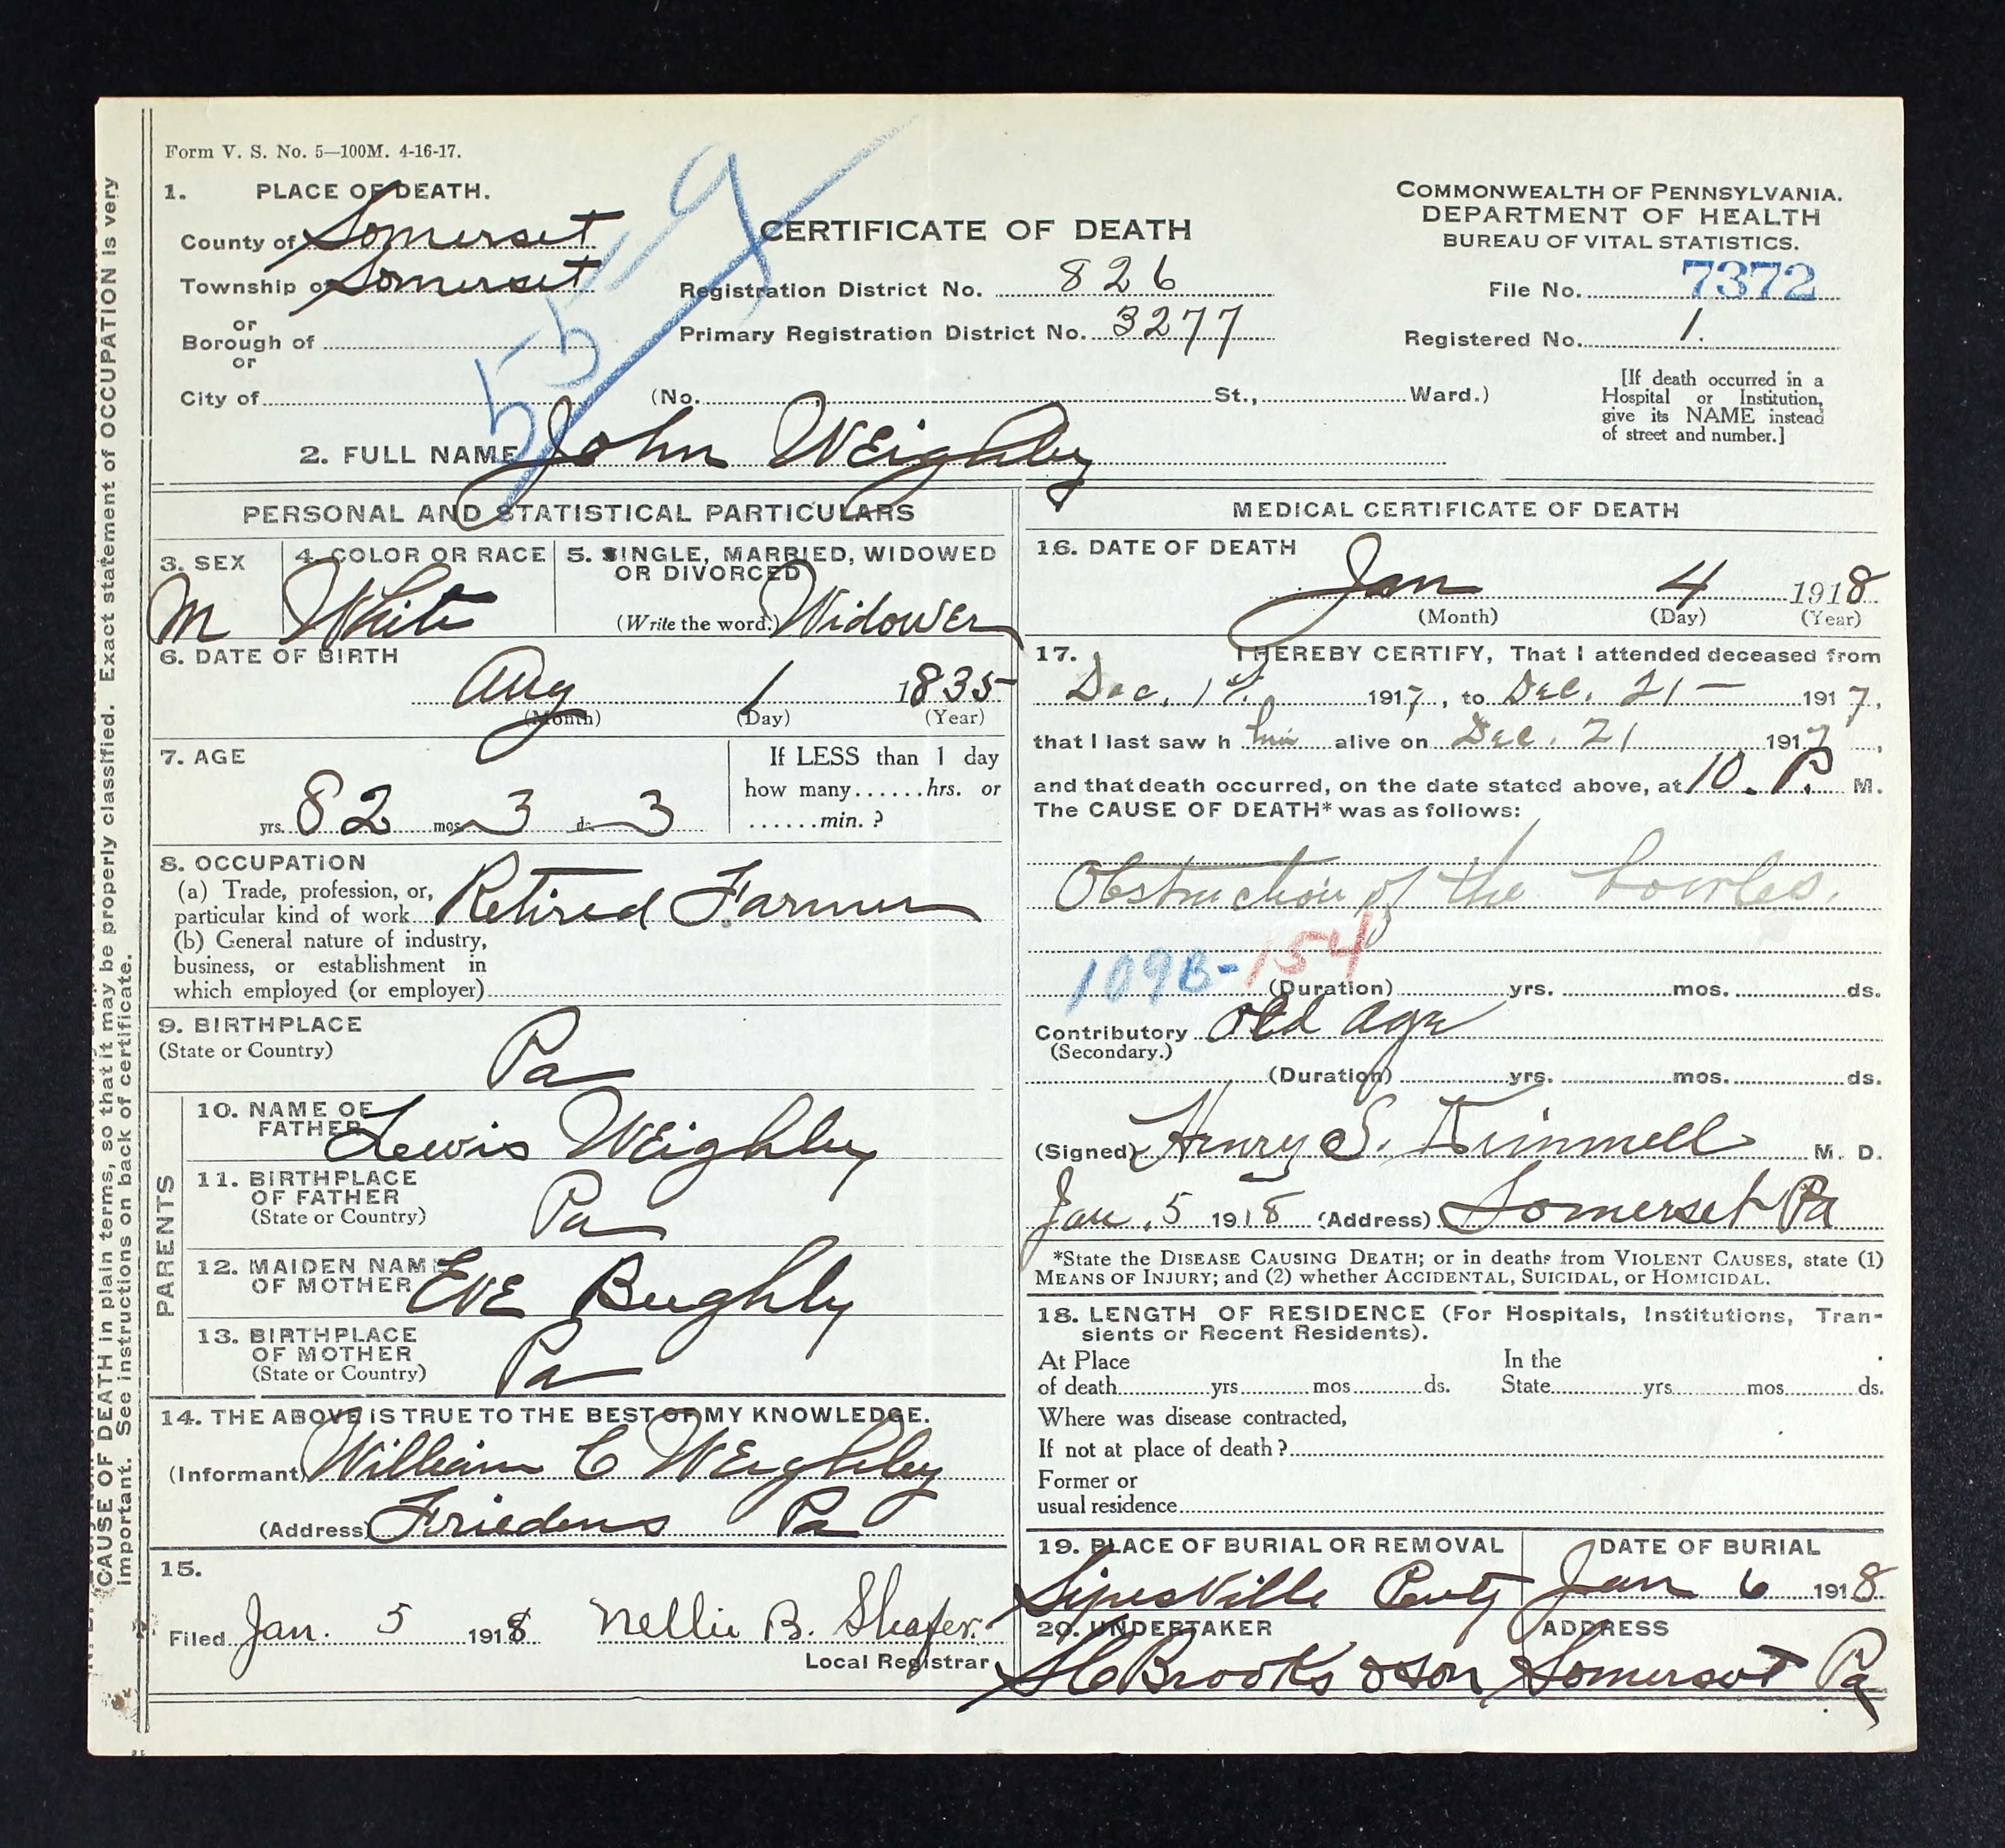 Form V. S. No. 5—100M. 4-16-17.
1. PLACE OF DEATH.
County of Somerset
Township of Somerset
or
Borough of
or
City of
559
CERTIFICATE OF DEATH
Registration District No. 826
Primary Registration District No. 3277
(No. , St., Ward.)
COMMONWEALTH OF PENNSYLVANIA.
DEPARTMENT OF HEALTH
BUREAU OF VITAL STATISTICS.
File No. 7372
Registered No. 1.
[If death occurred in a
Hospital or Institution,
give its NAME instead
of street and number.]
2. FULL NAME John Weighley
PERSONAL AND STATISTICAL PARTICULARS
3. SEX
M
4. COLOR OR RACE
White
5. SINGLE, MARRIED, WIDOWED
OR DIVORCED
(Write the word.) Widower
6. DATE OF BIRTH
Aug 1 1835
(Month) (Day) (Year)
7. AGE
yrs. 82 mos 3 ds 3
If LESS than 1 day
how many......hrs. or
......min. ?
8. OCCUPATION
(a) Trade, profession, or,
particular kind of work Retired Farmer
(b) General nature of industry,
business, or establishment in
which employed (or employer)
9. BIRTHPLACE
(State or Country)
Pa
PARENTS
10. NAME OF
FATHER Lewis Weighley
11. BIRTHPLACE
OF FATHER
(State or Country)
Pa
12. MAIDEN NAME
OF MOTHER Eve Bughly
13. BIRTHPLACE
OF MOTHER
(State or Country)
Pa
14. THE ABOVE IS TRUE TO THE BEST OF MY KNOWLEDGE.
(Informant) William C Weighley
(Address) Friedens Pa
15.
Filed Jan. 5 1918 Nellie B. Shafer.
Local Registrar
MEDICAL CERTIFICATE OF DEATH
16. DATE OF DEATH
Jan 4 1918
(Month) (Day) (Year)
17. I HEREBY CERTIFY, That I attended deceased from
Dec. 1st 1917, to Dec. 21— 1917,
that I last saw h him alive on Dec. 21 1917,
and that death occurred, on the date stated above, at 10. P. M.
The CAUSE OF DEATH* was as follows:
Obstruction of the bowles.
109B-154
(Duration) yrs. mos. ds.
Contributory Old Age
(Secondary.)
(Duration) yrs. mos. ds.
(Signed) Henry S. Kimmell M. D.
Jan. 5 1918 (Address) Somerset Pa
*State the DISEASE CAUSING DEATH; or in deaths from VIOLENT CAUSES, state (1)
MEANS OF INJURY; and (2) whether ACCIDENTAL, SUICIDAL, or HOMICIDAL.
18. LENGTH OF RESIDENCE (For Hospitals, Institutions, Tran-
sients or Recent Residents).
At Place In the
of death yrs mos ds. State yrs mos ds.
Where was disease contracted,
If not at place of death ?
Former or
usual residence
19. PLACE OF BURIAL OR REMOVAL
Sipesville Cmty
DATE OF BURIAL
Jan 6 1918
20. UNDERTAKER
Brooks & Son
ADDRESS
Somerset Pa
CAUSE OF DEATH in plain terms, so that it may be properly classified. Exact statement of OCCUPATION is very
important. See instructions on back of certificate.